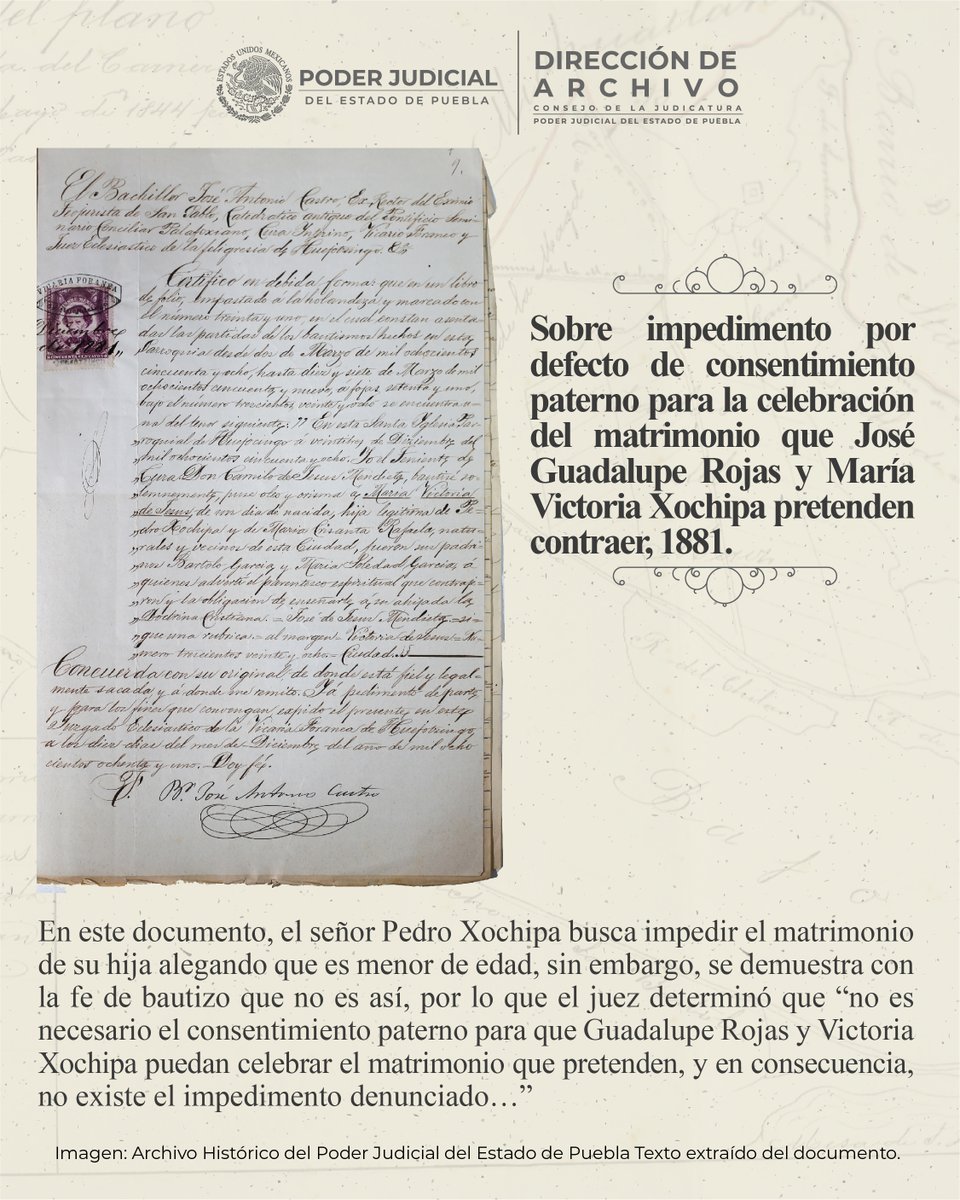 ESTADOS UNIDOS MEXICANOS
PODER JUDICIAL
DEL ESTADO DE PUEBLA
DIRECCIÓN DE
ARCHIVO
CONSEJO DE LA JUDICATURA
PODER JUDICIAL DEL ESTADO DE PUEBLA
9.
El Bachiller José Antonio Castro, Ex-Rector del Eximio
de San Pablo, Catedratico antiguo del Pontificio Semi-
nario Conciliar Palafoxiano, Cura Interino, Vicario Foraneo y
Juez Eclesiastico de la feligresia de Huejotzingo. &
Certifico en debida forma: que en un libro
de folio, empastado á la holandeza y marcado con
el número treinta y uno, en el cual constan asenta-
das las partidas de los bautismos hechos en esta
Parroquia desde dos de Marzo de mil ochocientos
cincuenta y ocho, hasta diez y siete de Marzo de mil
ochocientos cincuenta y nueve, á fojas setenta y una,
bajo el número trescientos veinte y ocho se encuentra u-
na del tenor siguiente: " En esta Santa Iglesia Par-
roquial de Huejocingo á veintitres de Diziembre del
mil ochocientos cincuenta y ocho. Yo el Teniente de
Cura Don Camilo de Jesus Mendieta, bautisé so-
lemnemente, puse oleo y crisma á Maria Victoria
de Jesus, de un dia de nacida, hija legitima de Pe-
dro Xochipa y de Maria Crisanta Rafaela, natu-
rales y vecinos de esta Ciudad, fueron sus padri-
nos Bartolo Garcia y Maria Soledad Garcia, á
quienes advertí el parentesco espiritual que contraje-
ron y la obligacion de enseñarle á su ahijada la
Doctrina Cristiana. = José de Jesus Mendieta = si-
gue una rubrica = al margen = Victoria de Jesus = Nu-
mero trescientos veinte y ocho = Ciudad.
Concuerda con su original, de donde está fiel y legal-
mente sacada y á donde me remito. Y á pedimento de parte
y para los fines que convengan expido el presente en este
Juzgado Eclesiastico de la Vicaria Foranea de Huejotzingo,
a los diez dias del mes de Diciembre del año de mil ocho
cientos ochenta y uno. Doy fé.
Br. José Antonio Castro
VICARIA FORANEA
Sobre impedimento por
defecto de consentimiento
paterno para la celebración
del matrimonio que José
Guadalupe Rojas y María
Victoria Xochipa pretenden
contraer, 1881.
En este documento, el señor Pedro Xochipa busca impedir el matrimonio
de su hija alegando que es menor de edad, sin embargo, se demuestra con
la fe de bautizo que no es así, por lo que el juez determinó que “no es
necesario el consentimiento paterno para que Guadalupe Rojas y Victoria
Xochipa puedan celebrar el matrimonio que pretenden, y en consecuencia,
no existe el impedimento denunciado…”
Imagen: Archivo Histórico del Poder Judicial del Estado de Puebla Texto extraído del documento.